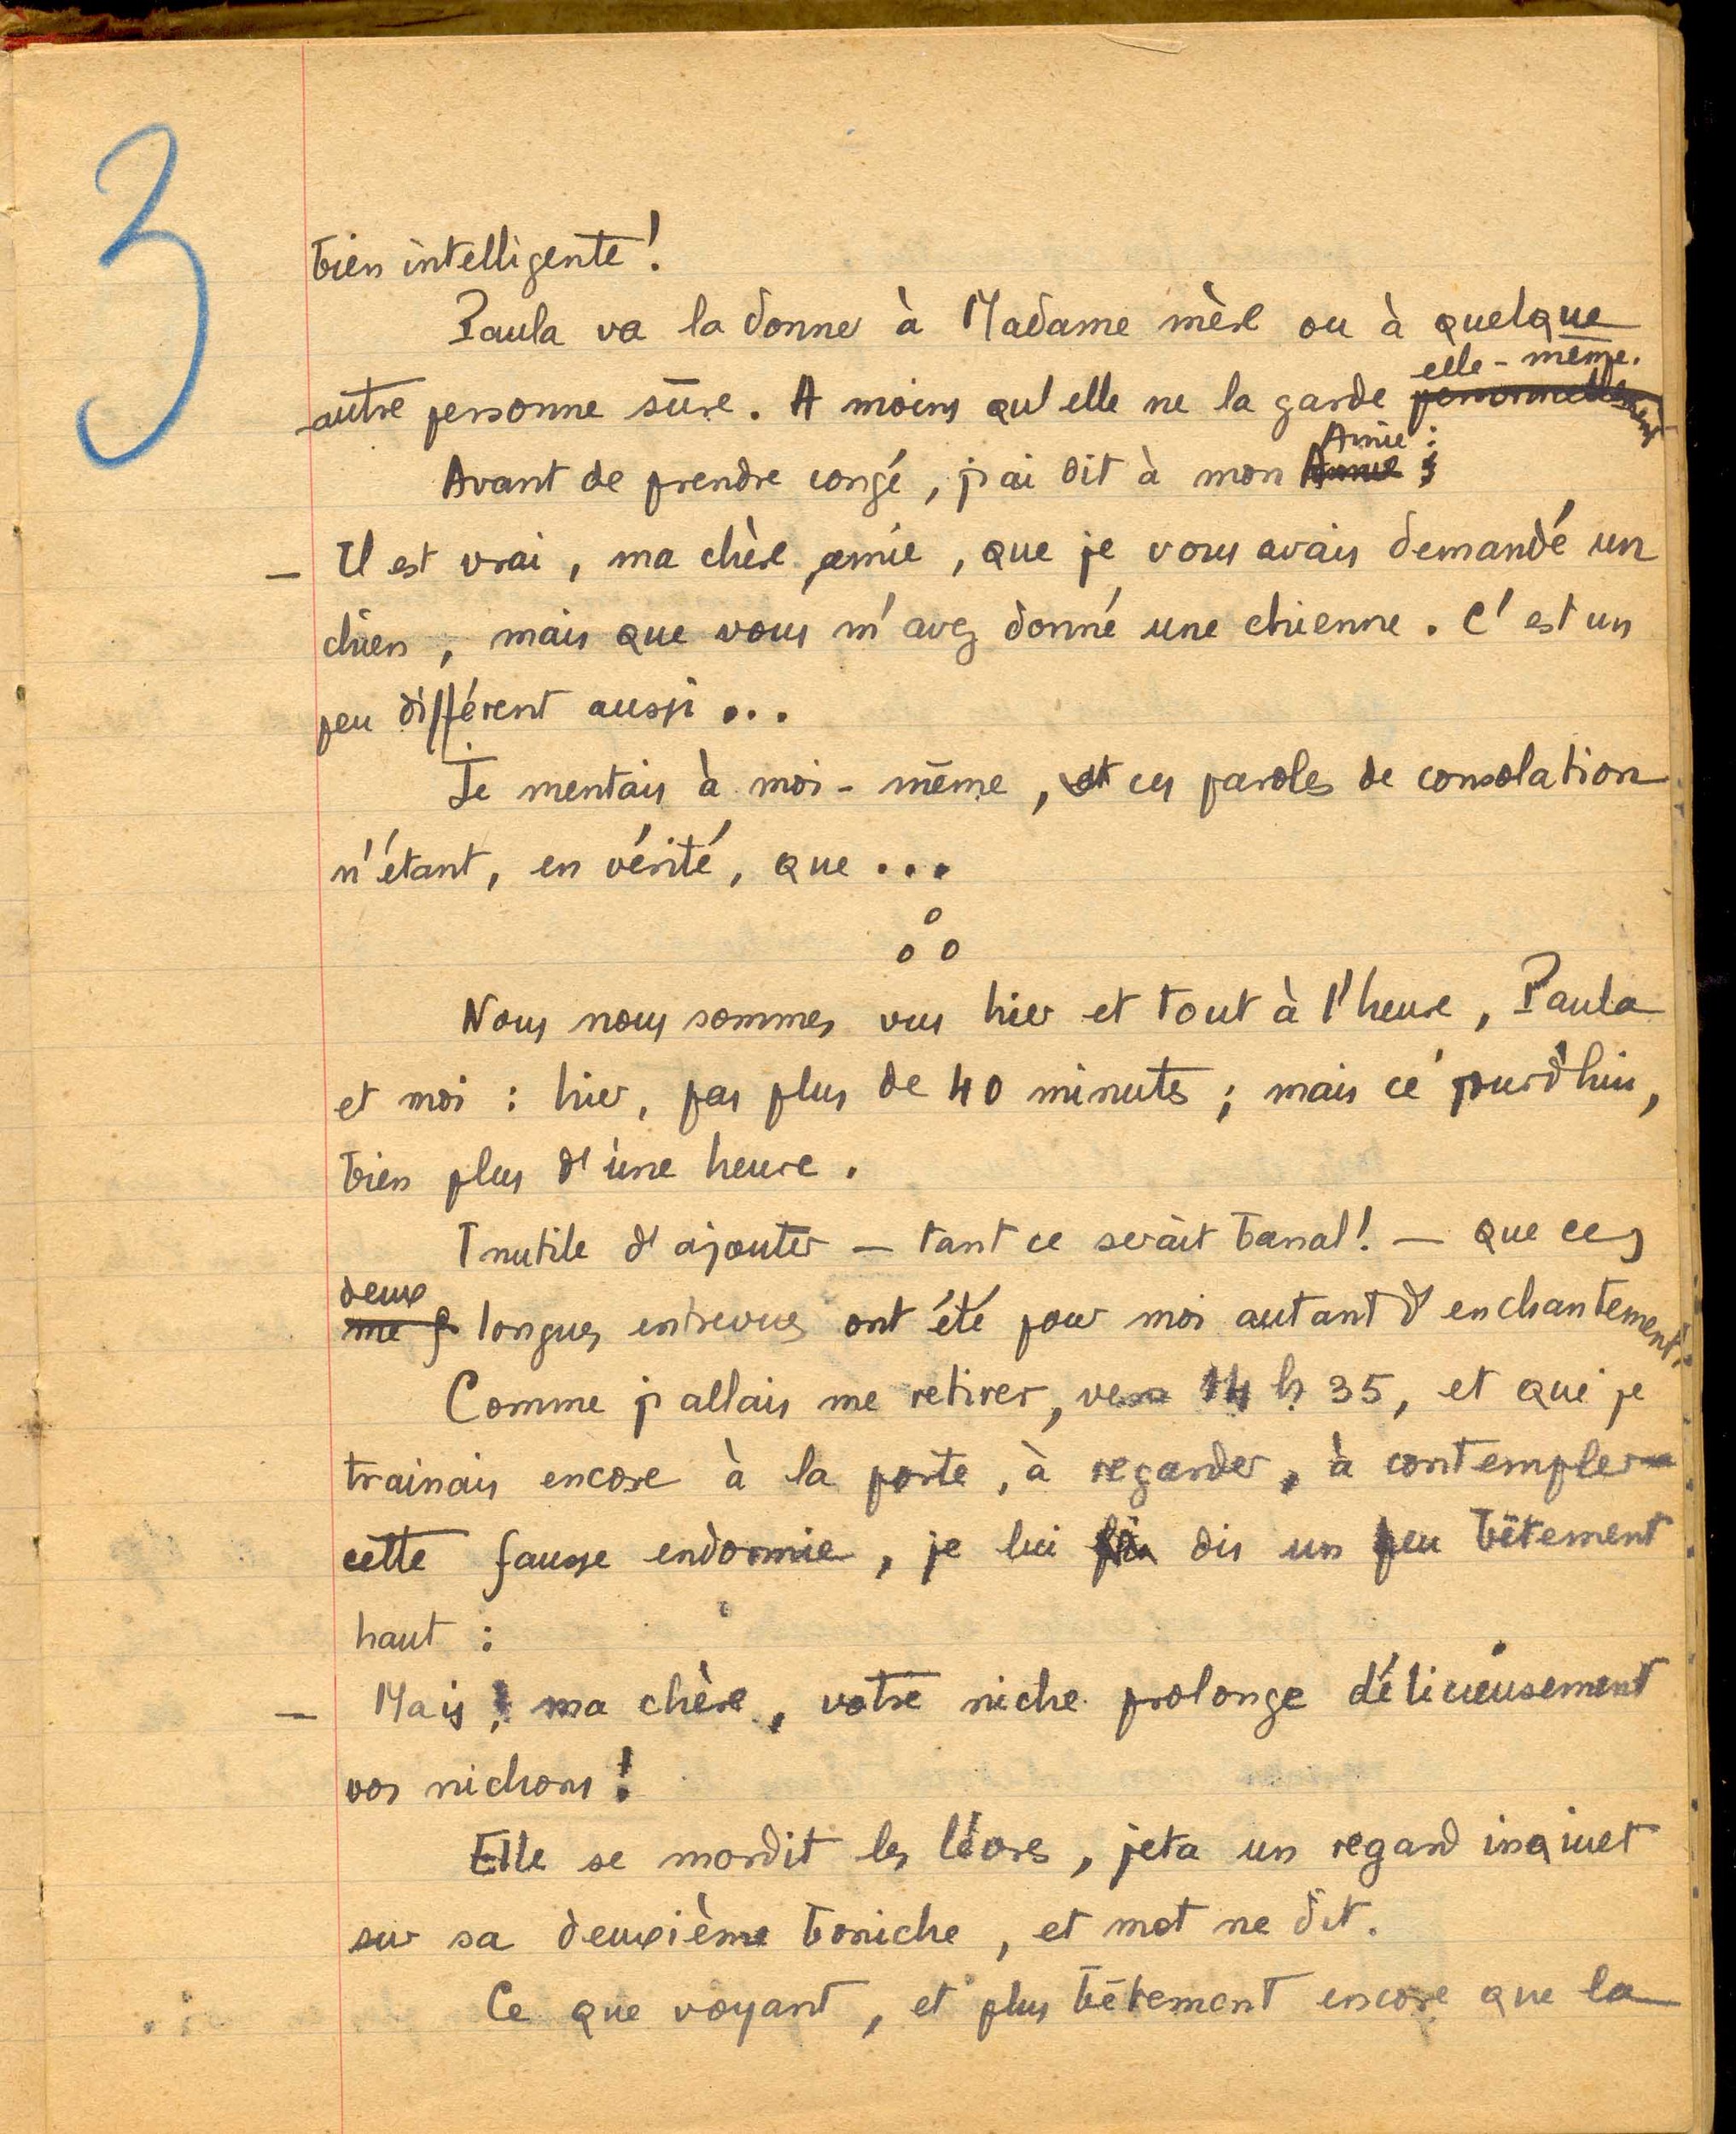 3
bien intelligente !
Paula va la donner à Madame mère ou à quelque
elle-même.
autre personne sûre. A moins qu'elle ne la garde personnellement
Amie :
Avant de prendre congé, j'ai dit à mon Amie :
— Il est vrai, ma chère amie, que je vous avais demandé un
chien, mais que vous m'avez donné une chienne. C'est un
peu différent aussi...
Je mentais à moi-même, et ces paroles de consolation
n'étant, en vérité, que...
Nous nous sommes vus hier et tout à l'heure, Paula
et moi : hier, pas plus de 40 minutes ; mais ce jourd'hui,
bien plus d'une heure.
Inutile d'ajouter — tant ce serait banal ! — que ces
deux
longues entrevues ont été pour moi autant d'enchantements.
Comme j'allais me retirer, vers 14 h 35, et que je
trainais encore à la porte, à regarder, à contempler
cette fausse endormie, je lui dis un peu bêtement
haut :
— Mais, ma chère, votre niche prolonge délicieusement
vos nichons !
Elle se mordit les lèvres, jeta un regard inquiet
sur sa deuxième boniche, et mot ne dit.
Ce que voyant, et plus bêtement encore que la